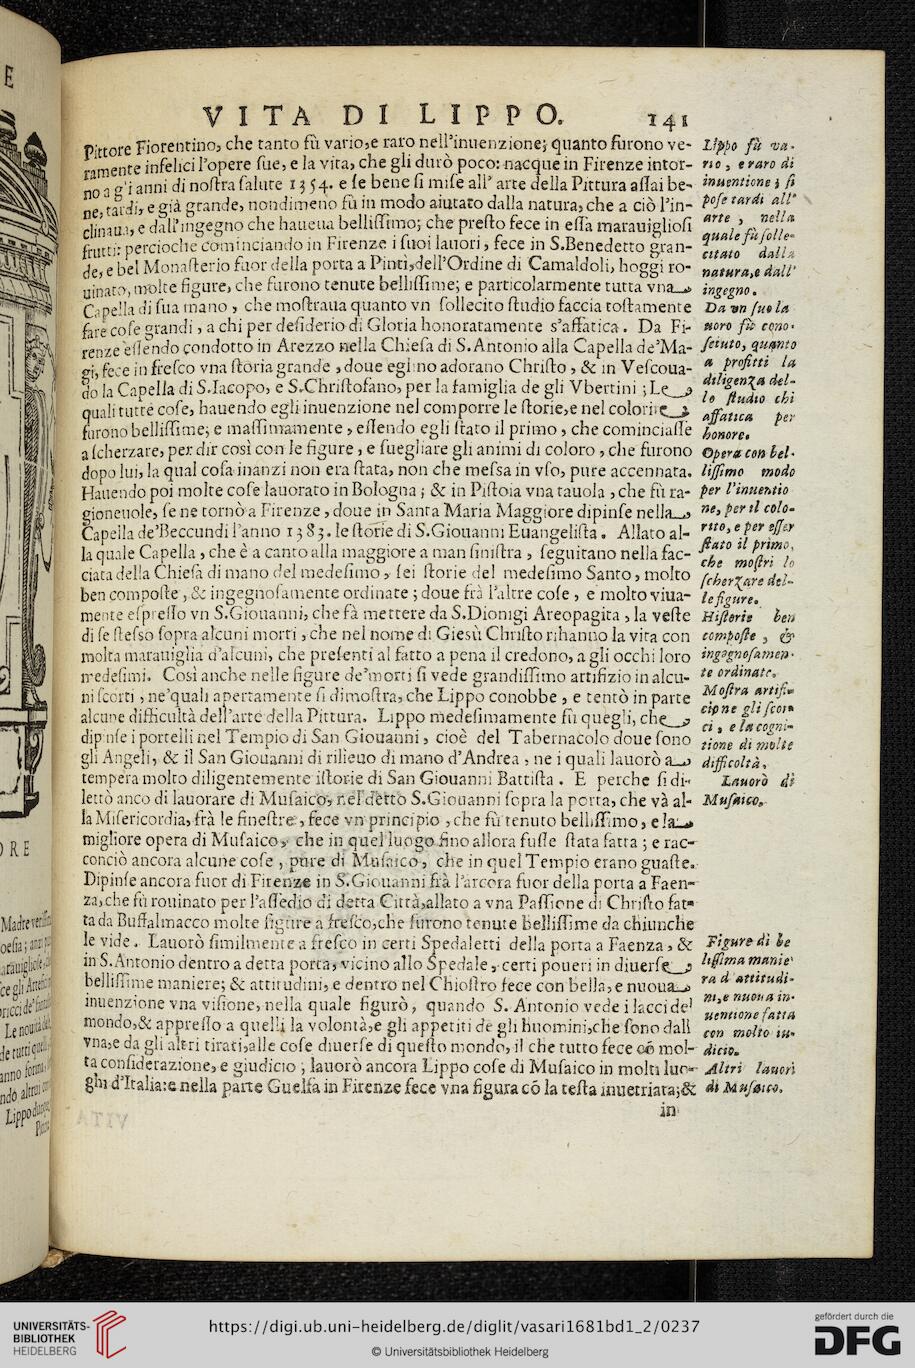 VITA DI LIPPO. 141
Pittore Fiorentino, che tanto fù vario,e raro nell'inuenzione; quanto furono ve-
ramente infelici l'opere ſue, e la vita, che gli durò poco: nacque in Firenze intor-
no a g'i anni di noſtra ſalute 1354. e ſe bene ſi miſe all' arte della Pittura aſſai be-
ne, tardi, e già grande, nondimeno fù in modo aiutato dalla natura, che a ciò l'in-
clinaua, e dall'ingegno che haueua belliſſimo; che preſto fece in eſſa marauiglioſi
frutti: percioche cominciando in Firenze i ſuoi lauori, fece in S.Benedetto gran-
de, e bel Monaſterio fuor della porta a Pinti,dell'Ordine di Camaldoli, hoggi ro-
uinato, molte figure, che furono tenute belliſſime; e particolarmente tutta vna
Capella di ſua mano, che moſtraua quanto vn ſollecito ſtudio faccia toſtamente
fare coſe grandi, a chi per deſiderio di Gloria honoratamente s'affatica. Da Fi-
renze eſſendo condotto in Arezzo nella Chieſa di S.Antonio alla Capella de'Ma-
gi, fece in freſco vna ſtoria grande, doue eglino adorano Chriſto, & in Veſcoua-
do la Capella di S.Iacopo, e S.Chriſtofano, per la famiglia de gli Vbertini; Le
quali tutte coſe, hauendo egli inuenzione nel comporre le ſtorie,e nel colorire
furono belliſſime; e maſſimamente, eſſendo egli ſtato il primo, che cominciaſſe
a ſcherzare, per dir così con le figure, e ſuegliare gli animi di coloro, che furono
dopo lui, la qual coſa inanzi non era ſtata, non che meſsa in vſo, pure accennata.
Hauendo poi molte coſe lauorato in Bologna; & in Piſtoia vna tauola, che fù ra-
gioneuole, ſe ne tornò a Firenze, doue in Santa Maria Maggiore dipinſe nella
Capella de'Beccundi l'anno 1383. le ſtorie di S.Giouanni Euangeliſta. Allato al-
la quale Capella, che è a canto alla maggiore a man ſiniſtra, ſeguitano nella fac-
ciata della Chieſa di mano del medeſimo, ſei ſtorie del medeſimo Santo, molto
ben compoſte, & ingegnoſamente ordinate; doue frà l'altre coſe, e molto viua-
mente eſpreſſo vn S.Giouanni, che fà mettere da S.Dionigi Areopagita, la veſte
di ſe ſteſso ſopra alcuni morti, che nel nome di Giesù Chriſto rihanno la vita con
molta marauiglia d'alcuni, che preſenti al fatto a pena il credono, a gli occhi loro
medeſimi. Così anche nelle figure de'morti ſi vede grandiſſimo artifizio in alcu-
ni ſcorti, ne'quali apertamente ſi dimoſtra, che Lippo conobbe, e tentò in parte
alcune difficultà dell'arte della Pittura. Lippo medeſimamente fù quegli, che
dipinſe i portelli nel Tempio di San Giouanni, cioè del Tabernacolo doue ſono
gli Angeli, & il San Giouanni di rilieuo di mano d'Andrea, ne i quali lauorò a
tempera molto diligentemente iſtorie di San Giouanni Battiſta. E perche ſi di-
lettò anco di lauorare di Muſaico, nel detto S.Giouanni ſopra la porta, che và al-
la Miſericordia, frà le fineſtre, fece vn principio, che fù tenuto belliſſimo, e la
migliore opera di Muſaico, che in quel luogo fino allora fuſſe ſtata fatta; e rac-
conciò ancora alcune coſe, pure di Muſaico, che in quel Tempio erano guaſte.
Dipinſe ancora fuor di Firenze in S.Giouanni frà l'arcora fuor della porta a Faen-
za, che fù rouinato per l'aſſedio di detta Città,allato a vna Paſſione di Chriſto fat-
ta da Buffalmacco molte figure a freſco,che furono tenute belliſſime da chiunche
le vide. Lauorò ſimilmente a freſco in certi Spedaletti della porta a Faenza, &
in S.Antonio dentro a detta porta, vicino allo Spedale, certi poueri in diuerſe
belliſſime maniere; & attitudini, e dentro nel Chioſtro fece con bella, e nuoua
inuenzione vna viſione, nella quale figurò, quando S. Antonio vede i lacci del
mondo,& appreſſo a quelli la volontà,e gli appetiti de gli huomini,che ſono dall
vna,e da gli altri tirati,alle coſe diuerſe di queſto mondo, il che tutto fece cō mol-
ta conſiderazione, e giudicio; lauorò ancora Lippo coſe di Muſaico in molti luo-
ghi d'Italia:e nella parte Guelfa in Firenze fece vna figura cō la teſta inuetriata;&
in
Lippo fù va-
rio, e raro di
inuentione; ſi
poſe tardi all'
arte, nella
quale fù ſolle-
citato dalla
natura,e dall'
ingegno.
Da vn ſuo la
uoro fù cono-
ſciuto, quanto
a profitti la
diligenza del-
lo ſtudio chi
affatica per
honore.
Opera con bel-
liſſimo modo
per l'inuentio
ne, per il colo-
rito, e per eſſer
ſtato il primo,
che moſtri lo
ſcherzare del-
le figure.
Hiſtorie ben
compoſte, &
ingegnoſamen-
te ordinate.
Moſtra artifi-
cio ne gli ſcor-
ci, e la cogni-
tione di molte
difficoltà.
Lauorò di
Muſaico.
Figure di be
liſſima manie
ra d'attitudi-
ni,e nuoua in-
uentione fatta
con molto iu-
dicio.
Altri lauori
di Muſaico.
E
ORE
Lippo
UNIVERSITÄTS-
BIBLIOTHEK
HEIDELBERG
https://digi.ub.uni-heidelberg.de/diglit/vasari1681bd1_2/0237
© Universitätsbibliothek Heidelberg
gefördert durch die
DFG